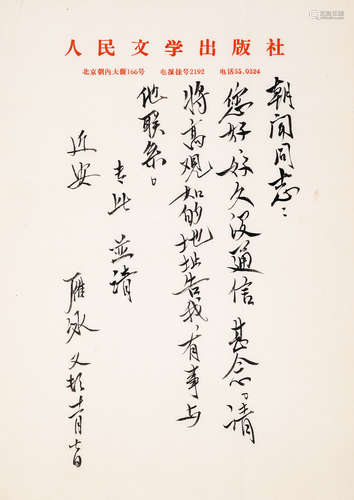 人民文学出版社
北京朝内大街166号 电报挂号2192 电话55.0324
朝闻同志：
您好 好久没通信 甚念。请
将高观知的地址告我，有事与
他联系。
专此 并请
近安
雁冰